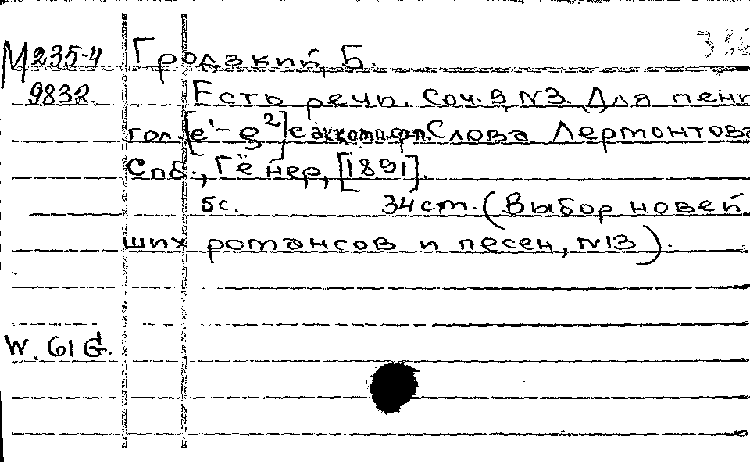 М 235-4 Гродзкий, Б.
9832 Есть речи. Соч. 8, N3. Для пен
гол. [e¹ - g²] с акком. фп. Слова Лермонтова
Спб., Гёнер, [1891].
5с. 34 ст. (Выбор новей
ших романсов и песен, N13).
W. 61 G.